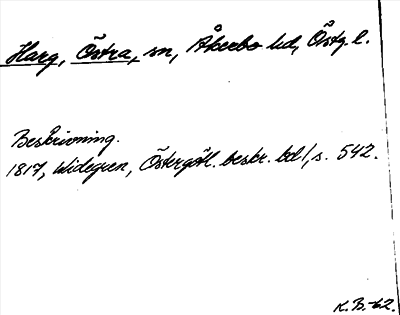 Harg, Östra, sn, Åkerbo hd, Östg. l.
Beskrivning.
1817, Widegren, Östergötl. beskr. bd 1, s. 542.
K.B.-62.